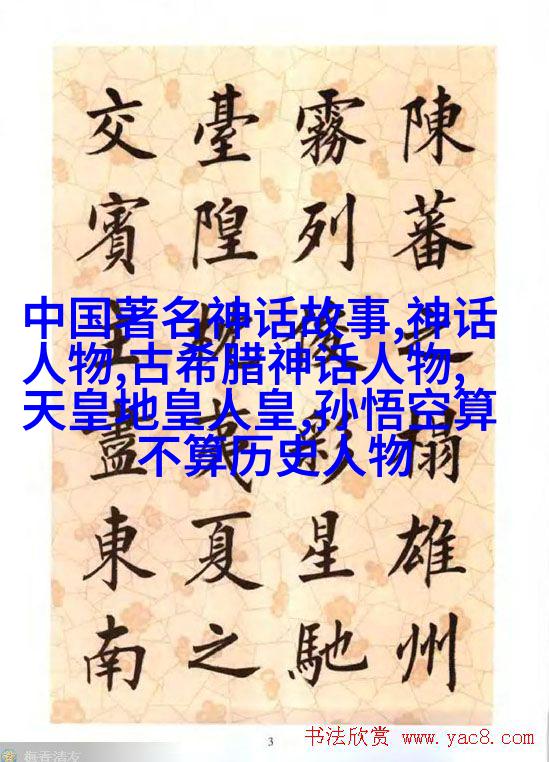 陳蕃之榻雄州
霧列俊彩星馳
臺隍枕夷夏之
交賓主盡東南
中国著名神话故事,神话
人物,古希腊神话人物,
天皇地皇人皇,孙悟空算
不算历史人物
3
书法欣赏 www.yac8.com